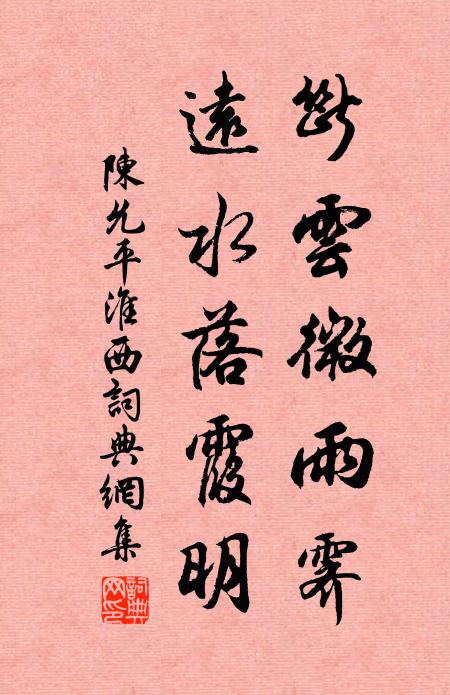 斷雲微雨霽
遠水落霞明
陳允平淮西詞典網集
詞典網印